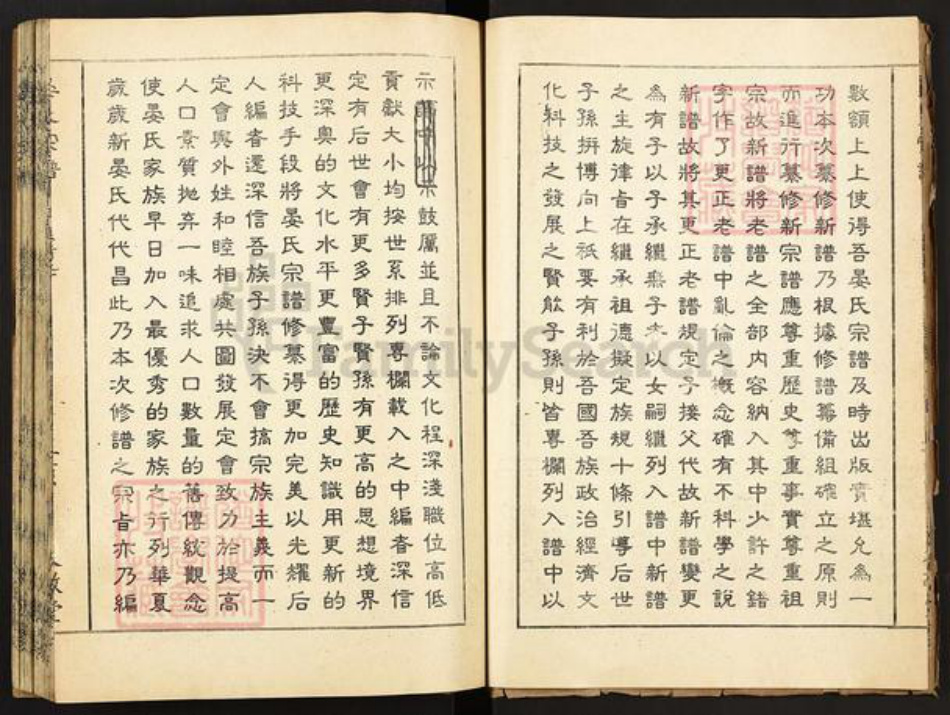 數額上上使得吾晏氏宗譜及時出版實堪允為一
功本次纂修新譜乃根據修譜籌備組確立之原則
而進行纂修新宗譜應尊重歷史尊重事實尊重祖
宗故新譜將老譜之全部內容納入其中少許之錯
字作了更正老譜中亂倫之概念確有不科學之說
新譜故將其更正老譜規定子接父代故新譜變更
為有子以子承繼無子者以女嗣繼列入譜中新譜
之主旋律旨在繼承祖德擬定族規十條引導后世
子孫拼博向上祇要有利於吾國吾族政治經濟文
化科技之發展之賢能子孫則皆專欄列入譜中以
示鼓厲並且不論文化程深淺職位高低
貢獻大小均按世系排列專欄載入之中編者深信
定有后世會有更多賢子賢孫有更高的思想境界
更深奧的文化水平更豐富的歷史知識用更新的
科技手段將晏氏宗譜修纂得更加完美以光耀后
人編者還深信吾族子孫決不會搞宗族主義而一
定會與外姓和睦相處共圖發展定會致力於提高
人口素質拋弃一味追求人口數量的舊傳統觀念
使晏氏家族早日加入最優秀的家族之行列華夏
歲歲新晏氏代代昌此乃本次修譜之宗旨亦乃編
FamilySearch